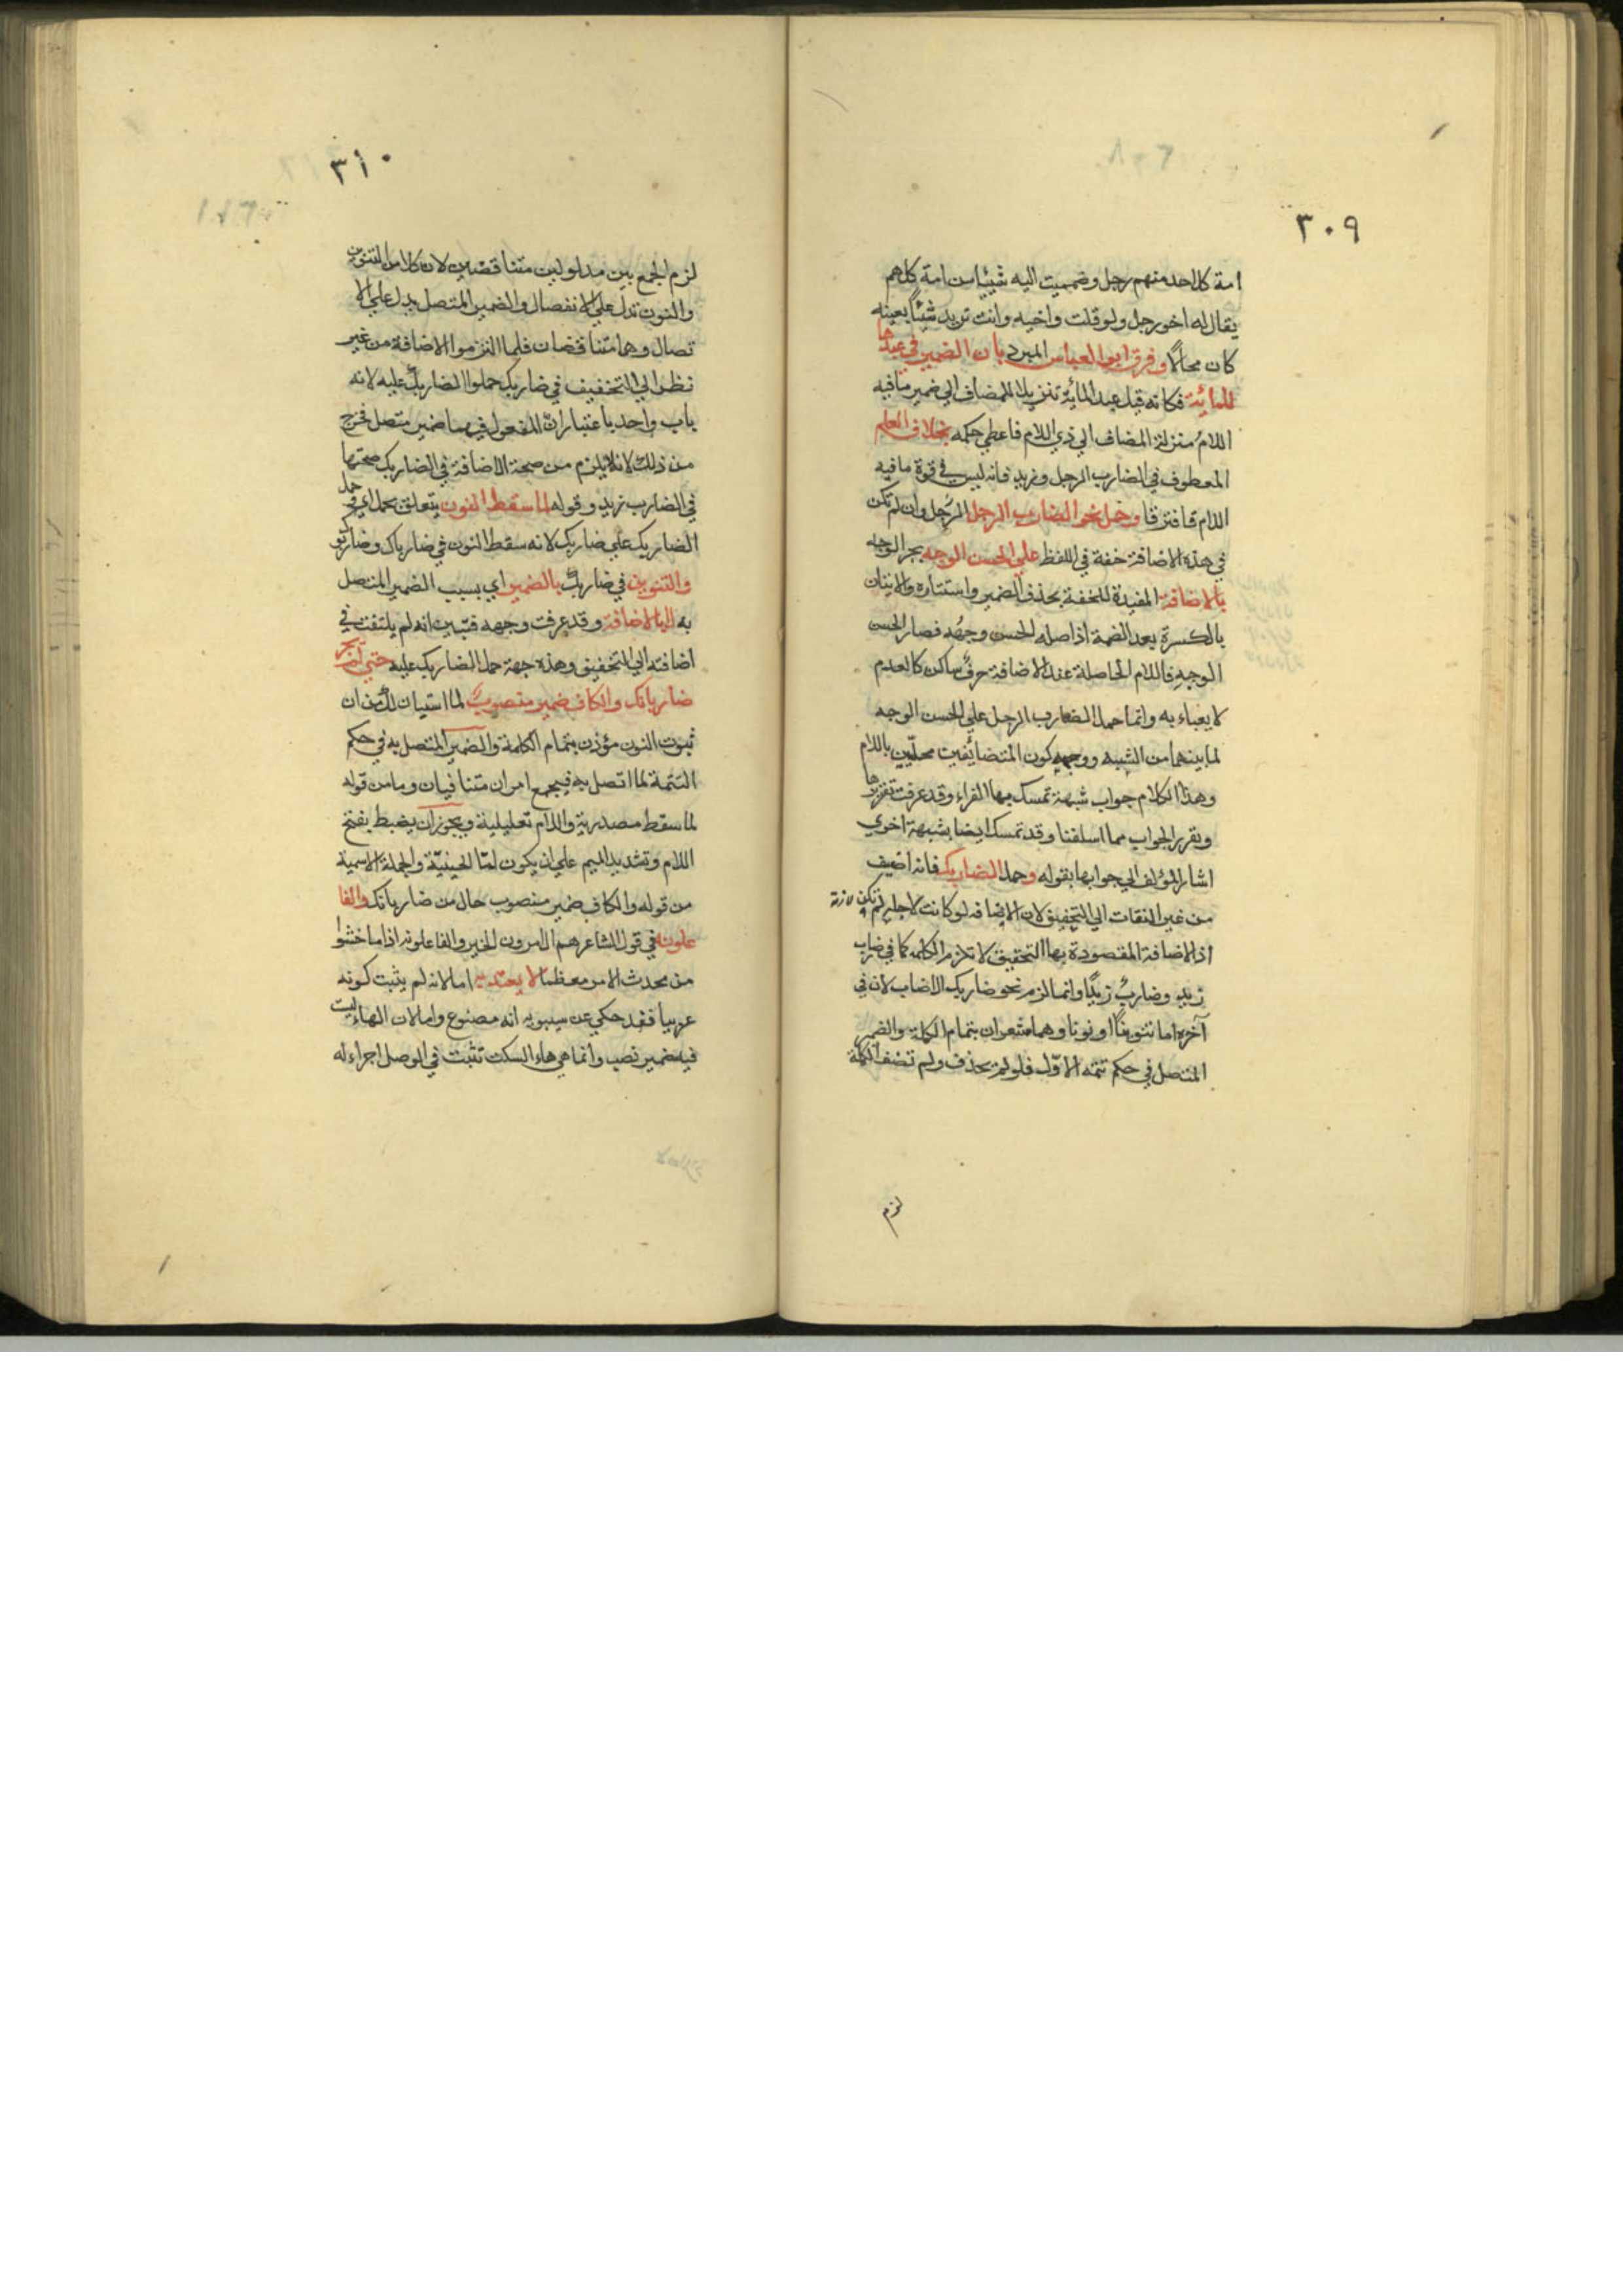 ٣٠٩
امة كل احد منهم رجل وضميت اليه شيئا من امة كلهم
يقال له اخو رجل ولو قلت واخيه وانت تريد شيئًا بعينه
كان محالًا وفرق ابو العباس المبرد بان الضمير في عبدها
للمائة فكانه قيل عبد المائة تنزيلا للمضاف الي ضمير ما فيه
اللام منزلة المضاف الي ذي اللام فاعطي حكمه بخلاف العلم
المعطوف في الضارب الرجل وزيد فانه ليس في قوة ما فيه
اللام فافترقا وحمل نحو الضارب الرجل الرجل وان لم تكن
في هذه الاضافة خفة في اللفظ علي الحسن الوجه بجر الوجه
بالاضافة المفيدة للخفة بحذف الضمير واستتاره والاتيان
بالكسرة بعد الضمة اذ اصله الحسن وجهُه فصار الحسن
الوجهِ فاللام الحاصلة عند الاضافة حرف ساكن كالعدم
لا يعباء به وانما حمل الضارب الرجل علي الحسن الوجه
لما بينهما من الشبه ووجهه كون المتضائفين محلّيين باللام
وهذا الكلام جواب شبهة تمسك بها الفراء وقد عرفت تقريرها
وتقرير الجواب مما اسلفنا وقد تمسك ايضا بشبهة اخري
اشار المؤلف الي جوابها بقوله وحمل الضاربك فانه اضيف
من غير التفات الي التخفيف لان الاضافه لو كانت لاجله لم تكن لازمة
اذ الاضافة المقصودة بها التخفيف لا تلزم الكلمه كما في ضارب
زيدٍ وضاربٌ زيدًا وانما لزم نحو ضاربك الاضاب لان في
آخره اما تنوينًا او نونا وهما مشعران بتمام الكلمة والضمير
المتصل في حكم تتمة الاوّل فلو لم تحذف ولم تضف الكلمة
لزم
٣١٠
لزم الجمع بين مدلولين متناقضين لان كلا من التنوين
والنون تدل علي الانفصال والضمير المتصل يدل علي الا
تصال وهما متناقضان فلما التزموا الاضافة من غير
نظر الي التخفيف في ضاربك حملوا الضاربك عليه لانه
باب واحد باعتبار ان المفعول فيهما ضمير متصل فخرج
من ذلك لانه لا يلزم من صحة الاضافة في الضاربك صحتها
في الضارب زيد وقوله لما سقط النون يتعلق بحمل اي وحمل
الضاربك علي ضاربك لانه سقط النون في ضارباك وضاربوك
والتنوين في ضاربك بالضمير اي بسبب الضمير المتصل
به لا بالاضافة وقد عرفت وجهه فتبين انه لم يلتفت في
اضافته الي التخفيف وهذه جهة حمل الضاربك عليه حتي لم يجز
ضاربانك والكاف ضمير منصوب لما استبان لك من ان
ثبوت النون مؤذن بتمام الكلمة والضمير المتصل به في حكم
التتمة لما اتصل به فيجمع امران متنافيان وما من قوله
لما سقط مصدرية واللام تعليلية ويجوز ان يضبط بفتح
اللام وتشديد الميم علي ان يكون لمّا الحينيّة والجملة الاسمية
من قوله والكاف ضمير منصوب حال من ضاربانك والفا
علونه في قول الشاعر هم الامرون الخير والفاعلونه اذا ما خشوا
من محدث الامر معظما لا يعتد به اما لانه لم يثبت كونه
عربيا فقد حكي عن سيبويه انه مصنوع واما لان الهاء ليست
فيه ضمير نصب وانما هي هاء السكت تثبت في الوصل اجراء له